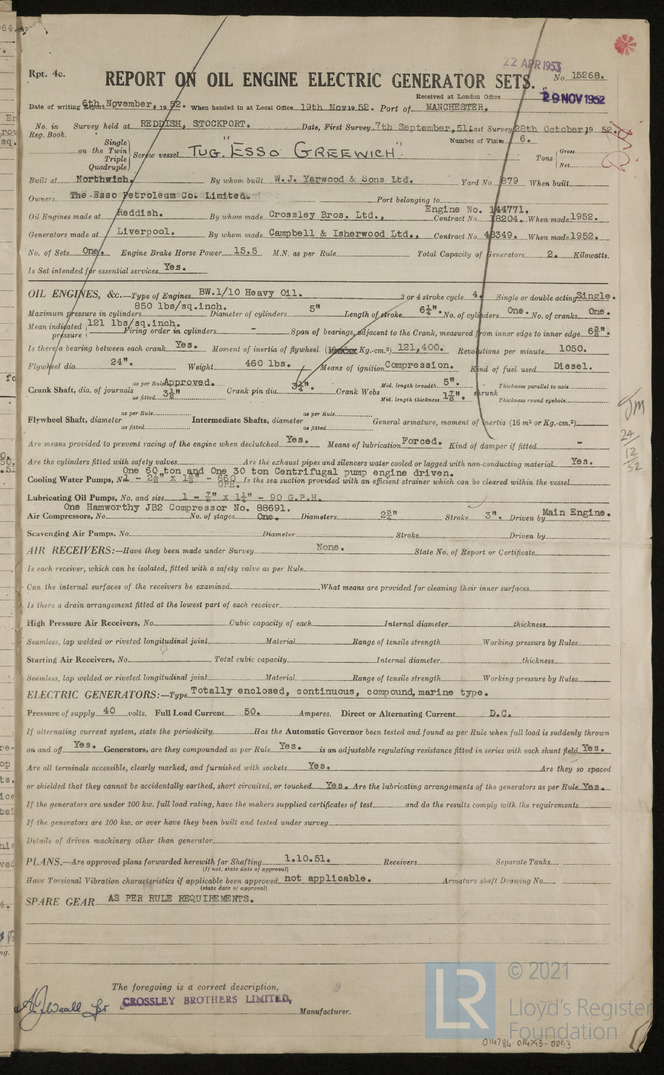 22 APR 1953
Rpt. 4c.
REPORT ON OIL ENGINE ELECTRIC GENERATOR SETS.
No. 15268.
Received at London Office
29 NOV 1952
Date of writing Report 6th November, 19 52. When handed in at Local Office 19th Nov 19 52. Port of MANCHESTER.
No. in Reg. Book. Survey held at REDDISH, STOCKPORT. Date, First Survey 7th September, 51 Last Survey 28th October, 19 52.
Number of Visits 6.
Single on the Twin Triple Quadruple Screw vessel TUG "ESSO GREEWICH" Tons Gross Net
Built at Northwich. By whom built W.J. Yarwood & Sons Ltd. Yard No. 879 When built
Owners The Esso Petroleum Co. Limited. Port belonging to
Oil Engines made at Reddish. By whom made Crossley Bros. Ltd., Engine No. 144771. Contract No. 18204. When made 1952.
Generators made at Liverpool. By whom made Campbell & Isherwood Ltd., Contract No. 48349. When made 1952.
No. of Sets One. Engine Brake Horse Power 15.5 M.N. as per Rule Total Capacity of Generators 2. Kilowatts.
Is Set intended for essential services Yes.
OIL ENGINES, &c.—Type of Engines BW.1/10 Heavy Oil. 2 or 4 stroke cycle 4. Single or double acting Single.
Maximum pressure in cylinders 850 lbs/sq.inch. Diameter of cylinders 5" Length of stroke 6¼". No. of cylinders One. No. of cranks One.
Mean indicated pressure 121 lbs/sq.inch. Firing order in cylinders - Span of bearings, adjacent to the Crank, measured from inner edge to inner edge
Is there a bearing between each crank Yes. Moment of inertia of flywheel (Kg.-cm.²) 121,400. Revolutions per minute 1050.
Flywheel dia. 24". Weight 460 lbs. Means of ignition Compression. Kind of fuel used Diesel.
Crank Shaft, dia. of journals as per Rule Approved. as fitted Crank pin dia. Crank Webs Mid. length breadth 5". Mid. length thickness shrunk Thickness parallel to axis Thickness round eyehole
Flywheel Shaft, diameter as per Rule as fitted Intermediate Shafts, diameter as per Rule as fitted General armature, moment of inertia (16 m² or Kg.-cm.²)
Are means provided to prevent racing of the engine when declutched. Yes. Means of lubrication Forced. Kind of damper if fitted -
Are the cylinders fitted with safety valves Are the exhaust pipes and silencers water cooled or lagged with non-conducting material Yes.
One 60 ton and One 30 ton Centrifugal pump engine driven.
Cooling Water Pumps, No. 1 - GPH. Is the sea suction provided with an efficient strainer which can be cleared within the vessel
Lubricating Oil Pumps, No. and size 1 - ⅞" x 1¼" - 90 G.P.H.
One Hamworthy JB2 Compressor No. 88691.
Air Compressors, No. No. of stages One. Diameters Stroke 3". Driven by Main Engine.
Scavenging Air Pumps, No. Diameter Stroke Driven by
AIR RECEIVERS:—Have they been made under Survey None. State No. of Report or Certificate
Is each receiver, which can be isolated, fitted with a safety valve as per Rule
Can the internal surfaces of the receivers be examined What means are provided for cleaning their inner surfaces
Is there a drain arrangement fitted at the lowest part of each receiver
High Pressure Air Receivers, No. Cubic capacity of each Internal diameter thickness
Seamless, lap welded or riveted longitudinal joint Material Range of tensile strength Working pressure by Rules
Starting Air Receivers, No. Total cubic capacity Internal diameter thickness
Seamless, lap welded or riveted longitudinal joint Material Range of tensile strength Working pressure by Rules
ELECTRIC GENERATORS:—Type Totally enclosed, continuous, compound, marine type.
Pressure of supply 40 volts. Full Load Current 50. Amperes. Direct or Alternating Current D.C.
If alternating current system, state the periodicity Has the Automatic Governor been tested and found as per Rule when full load is suddenly thrown
on and off Yes. Generators, are they compounded as per Rule Yes. is an adjustable regulating resistance fitted in series with each shunt field Yes.
Are all terminals accessible, clearly marked, and furnished with sockets Yes. Are they so spaced
or shielded that they cannot be accidentally earthed, short circuited, or touched Yes. Are the lubricating arrangements of the generators as per Rule Yes.
If the generators are under 100 kw. full load rating, have the makers supplied certificates of test and do the results comply with the requirements
If the generators are 100 kw. or over have they been built and tested under survey
Details of driven machinery other than generator
PLANS.—Are approved plans forwarded herewith for Shafting 1.10.51. Receivers Separate Tanks
(If not, state date of approval)
Have Torsional Vibration characteristics if applicable been approved not applicable. Armature shaft Drawing No.
(state date of approval)
SPARE GEAR AS PER RULE REQUIREMENTS.
The foregoing is a correct description,
CROSSLEY BROTHERS LIMITED,
Manufacturer.
24/12/52
LR
© 2021
Lloyd's Register
Foundation
014784-014793-0063